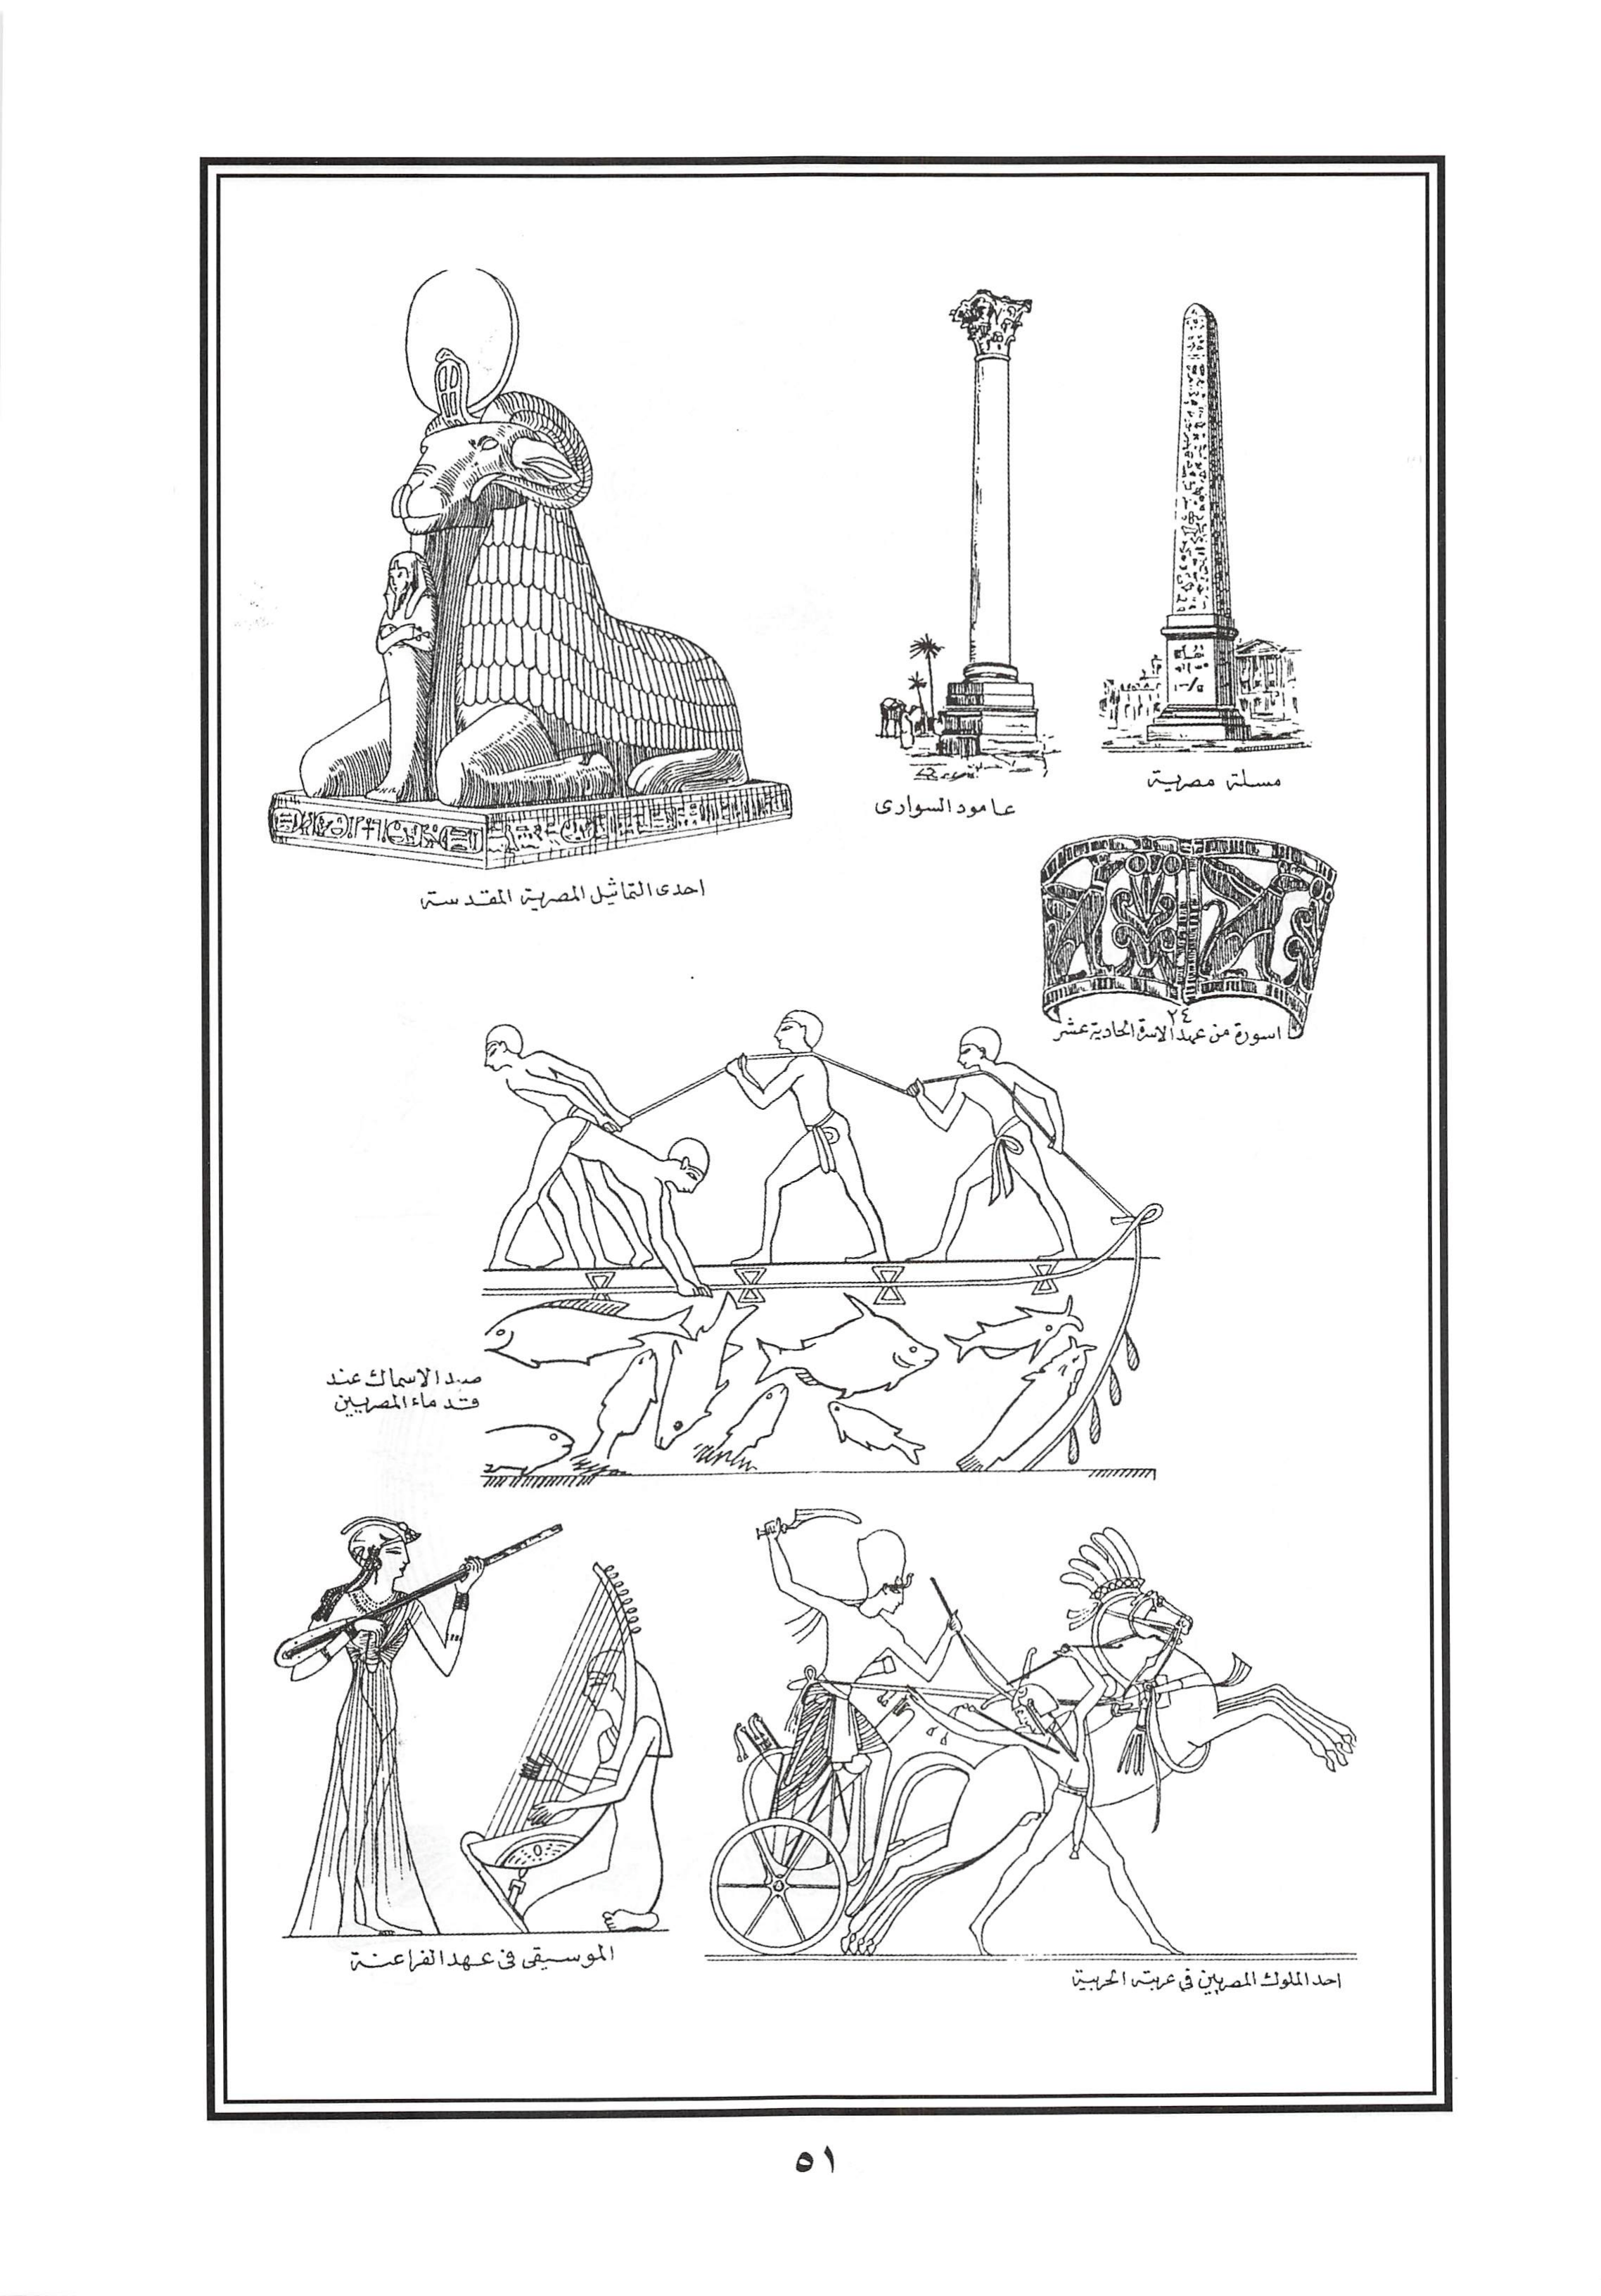 مسلة مصرية
عامود السوارى
احدى التماثيل المصرية المقدسة
٢٤
اسورة من عهد الاسرة الحادية عشر
صيد الاسماك عند
قدماء المصريين
الموسيقى فى عهد الفراعنة
احد الملوك المصريين فى عربته الحربية
٥١